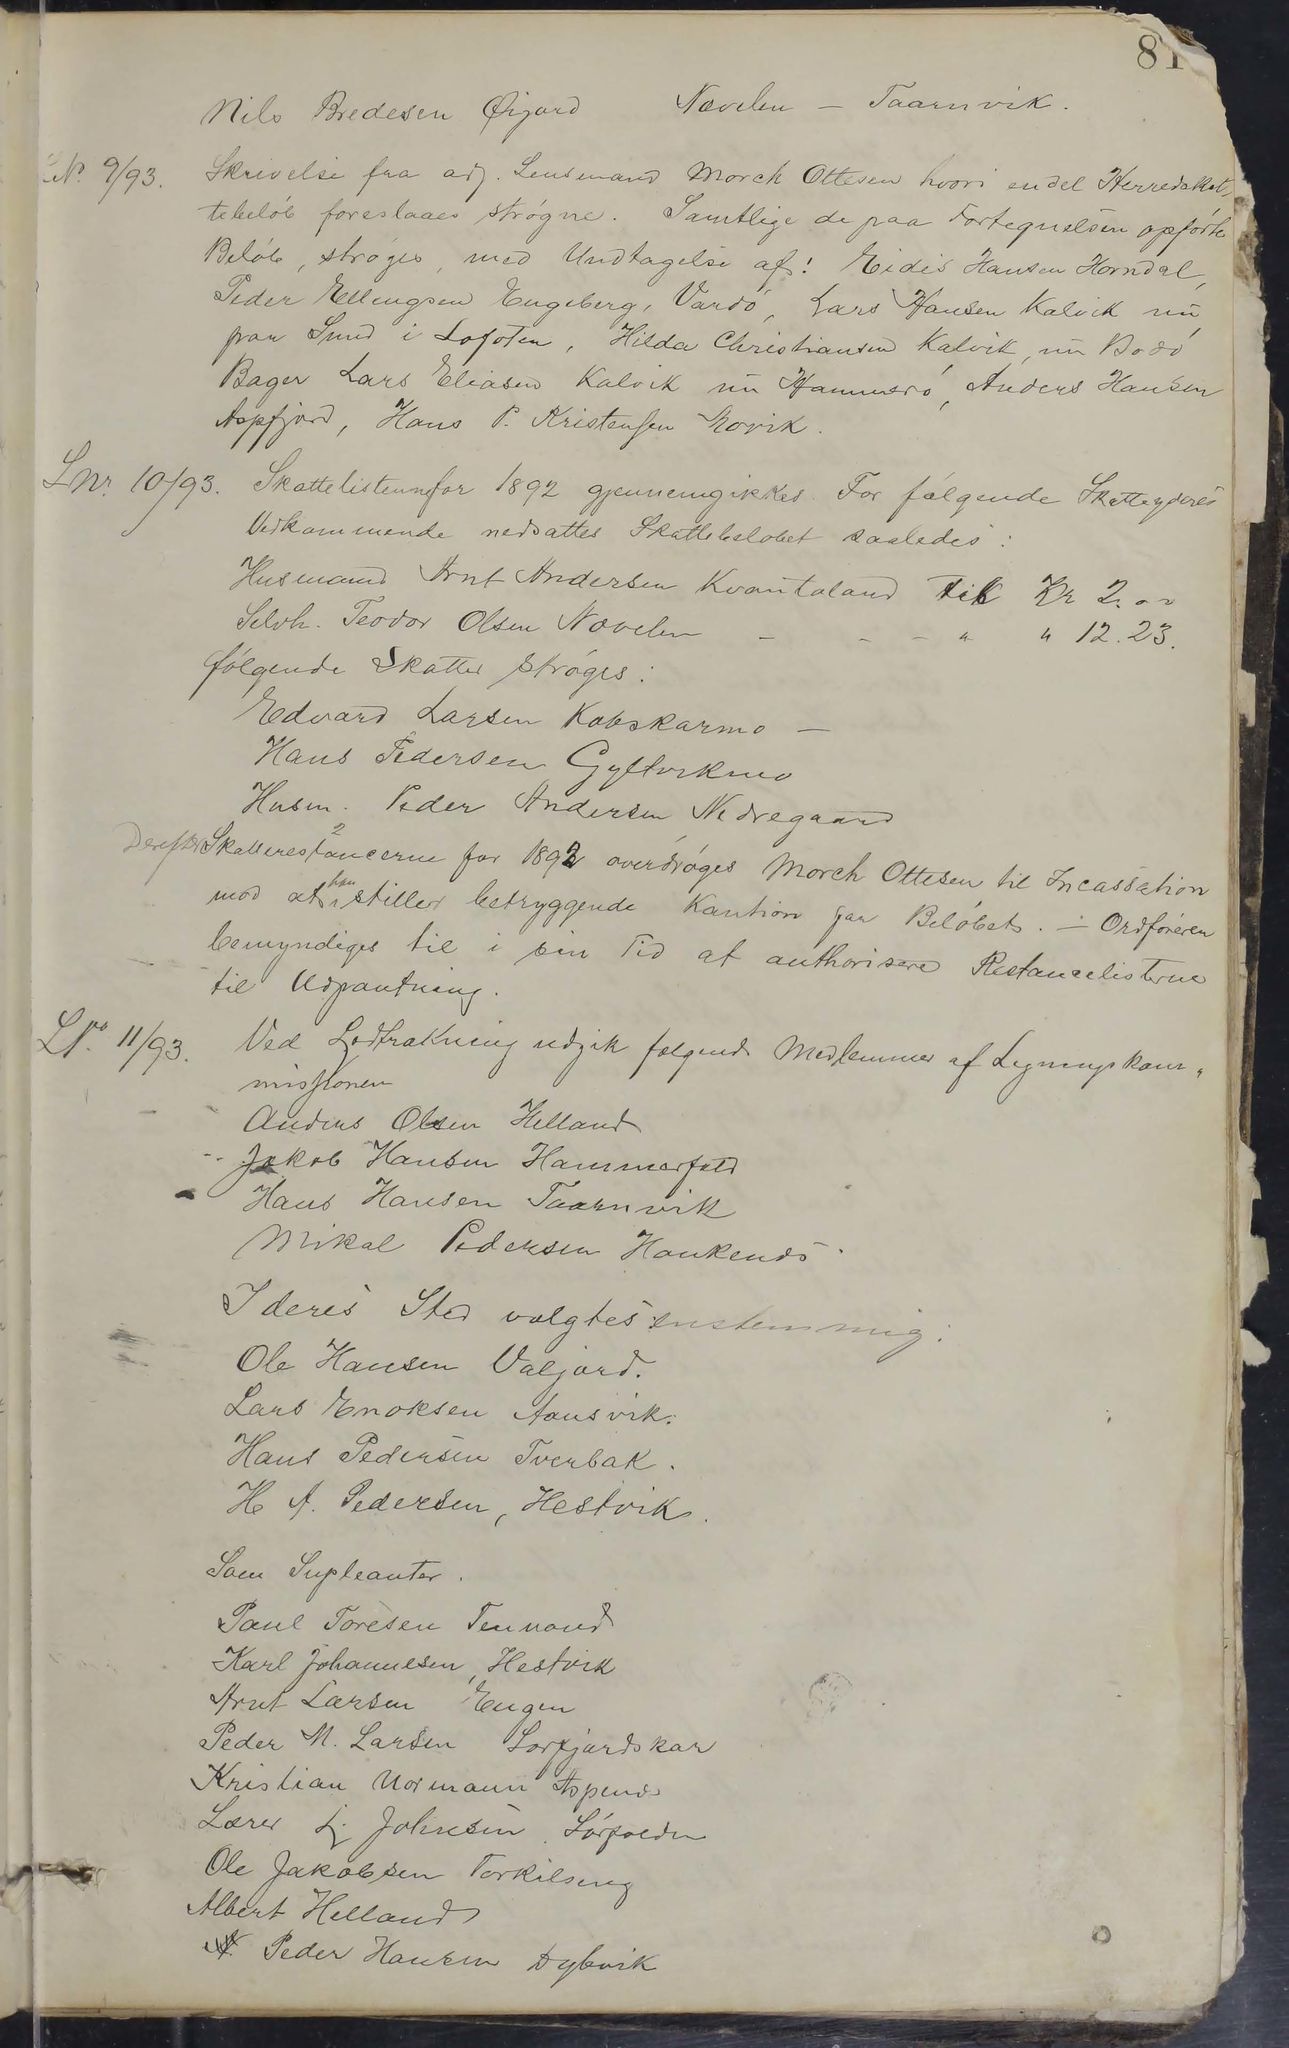 81
Nils Bredesen Øijord Nævelen - Taarnvik.
LNº 9/93. Skrivelse fra adj. Lensmand Morch Ottesen hvori endel Herredskat,
tebeløb foreslaaes strøgne. Samtlige de paa Fortegnelsen opførte
Beløb, strøges, med Undtagelse af: Eidis Hansen Horndal,
Peder Ellingsen Engeberg, Vardø, Lars Hansen Kalvik nu
paa Sund i Lofoten, Hilda Christiansen Kalvik, nu Bodø
Bager Lars Eliasen Kalvik nu Hammerø, Anders Hansen
Aspfjord, Hans P. Kristensen Røvik.
Lnr. 10/93. Skattelisten for 1892 gjennemgikkes. For følgende Skatteyderes
Vedkommende nedsattes Skattebeløbet saaledes:
Husmand Arnt Andersen Kvantoland til Kr 2.00
Selvh. Teodor Olsen Nævelen - - - " " 12.23.
følgende Skatter strøges:
Edvard Larsen Kobskarmo -
Hans Pedersen Gyltvikmo
Husm. Peder Andersen Nedregaard
Derefter Skatterestancerne for 1892 overdrøges Morch Ottesen til Incassation
mod at han stiller betryggende Kaution for Beløbet. - Ordføreren
bemyndiges til i sin Tid at authorisere Restancelisterne
til Udpantning.
LNº 11/93. Ved Lodtrækning udgik følgende Medlemmer af Ligningskom„
missionen
Anders Olsen Helland
Jakob Hansen Hammerfald
Hans Hansen Taarnvik
Mikal Pedersen Haukenes
I deres Sted valgtes enstemmig:
Ole Hansen Valjord.
Lars Enoksen Aansvik.
Hans Pedersen Tverbak.
H A. Pedersen, Hestvik.
Som Supleanter.
Paul Toresen Tennvand
Karl Johannesen, Hestvik
Arnt Larsen Engan
Peder M. Larsen Sørfjordskar
Kristian Normann Aspenes
Lærer L. Johnsen Sørfolden
Ole Jakobsen Torkilseng
Albert Helland
Peder Hansen Dybvik